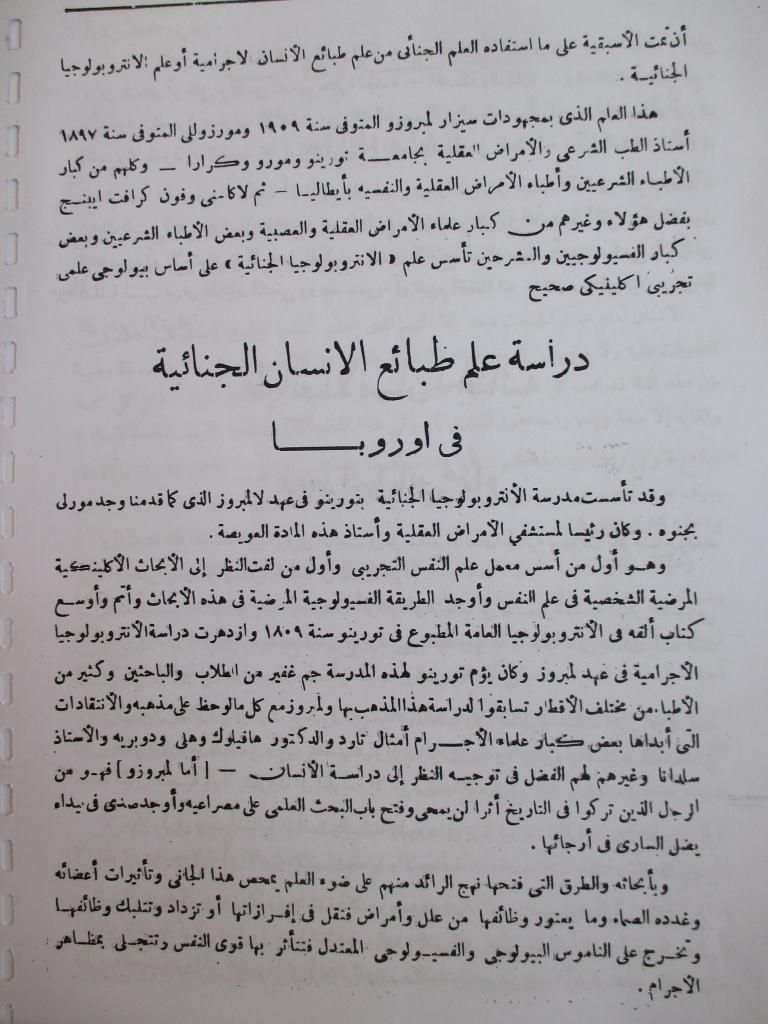 أن تمت الأسبقية على ما استفاده العلم الجنائى من علم طبائع الأنسان الاجرامية أو علم الانتروبولوجيا
الجنائيـة .
هذا العام الذى بمجهودات سيزار لمبروزو المتوفى سنة ١٩٠٩ ومورزوللى المتوفى سنة ١٨٩٧
أستاذ الطب الشرعى والأمراض العقلية بجامعـــة تورينو ومورو وكرارا — وكلهم من كبار
الأطبـاء الشرعيين وأطباء الأمراض العقلية والنفسيه بأيطاليـا — ثم لاكاسنى وفون كرافت ايبنـج
بفضل هؤلاء وغيرهم من كبار علماء الأمراض العقلية والعصبية وبعض الأطباء الشرعيين وبعض
كبار الفسيولوجيين والمشرحين تأسس علم « الانتروبولوجيا الجنائية » على أساس بيولوجى علمى
تجريبى اكلينيكى صحيح
دراسة علم طبائع الانسان الجنائية
فى اوروبـــا
وقد تأسست مدرسة الأنتروبولوجيا الجنائية بتورينو فى عهد لالمبروز الذى كما قدمنا وجد مورلى
بجنوه . وكان رئيسا لمستشفي الأمراض العقلية وأستاذ هذه المادة العويصة .
وهـو أول من أسس معمل علم النفس التجريبى وأول من لفت النظر إلى الأبحاث الأكلينكية
المرضية الشخصية فى علم النفس وأوجد الطريقة الفسيولوجية المرضية فى هذه الأبحاث وأتم وأوسع
كتاب ألفه فى الأنتروبولوجيا العامة المطبوع فى تورينو سنة ١٨٠٩ وازدهرت دراسة الأنتروبولوجيا
الأجرامية فى عهد لمبروز وكان يؤم تورينو لهذه المدرسة جم غفير من الطلاب والباحثين وكثير من
الأطباء من مختلف الأقطار تسابقوا لدراسة هذا المذهب بها ولمبروز مع كل مالوحظ على مذهبه والأنتقادات
التى أبداها بعض كبار علماء الأجـرام أمثال تارد والدكتور هافيلوك وهلى ودوبريه والأستاذ
سلدانا وغيرهم لهم الفضل فى توجيـه النظر إلى دراسـة الأنسان — [ أما لمبروزو ] فهـو من
الرجال الذين تركوا فى التاريخ أثرا لن يمحى وفتح باب البحث العلمى على مصراعيه وأوجد صدى فى بيداء
يضل السارى فى أرجائها .
وبأبحاثه والطرق التى فتحها نهج الرائد منهم على ضوء العلم يمحص هذا الجانى وتأثيرات أعضائه
وغدده الصماء وما يعتور وظائفها من علل وأمراض فتقل فى إفرازاتها أو تزداد وتتلبك وظائفهـا
وتخرج على الناموس البيولوجى والفسيـولوجى المعتدل فتتأثر بها قوى النفس وتتجلـى بمظاهر
الأجرام .